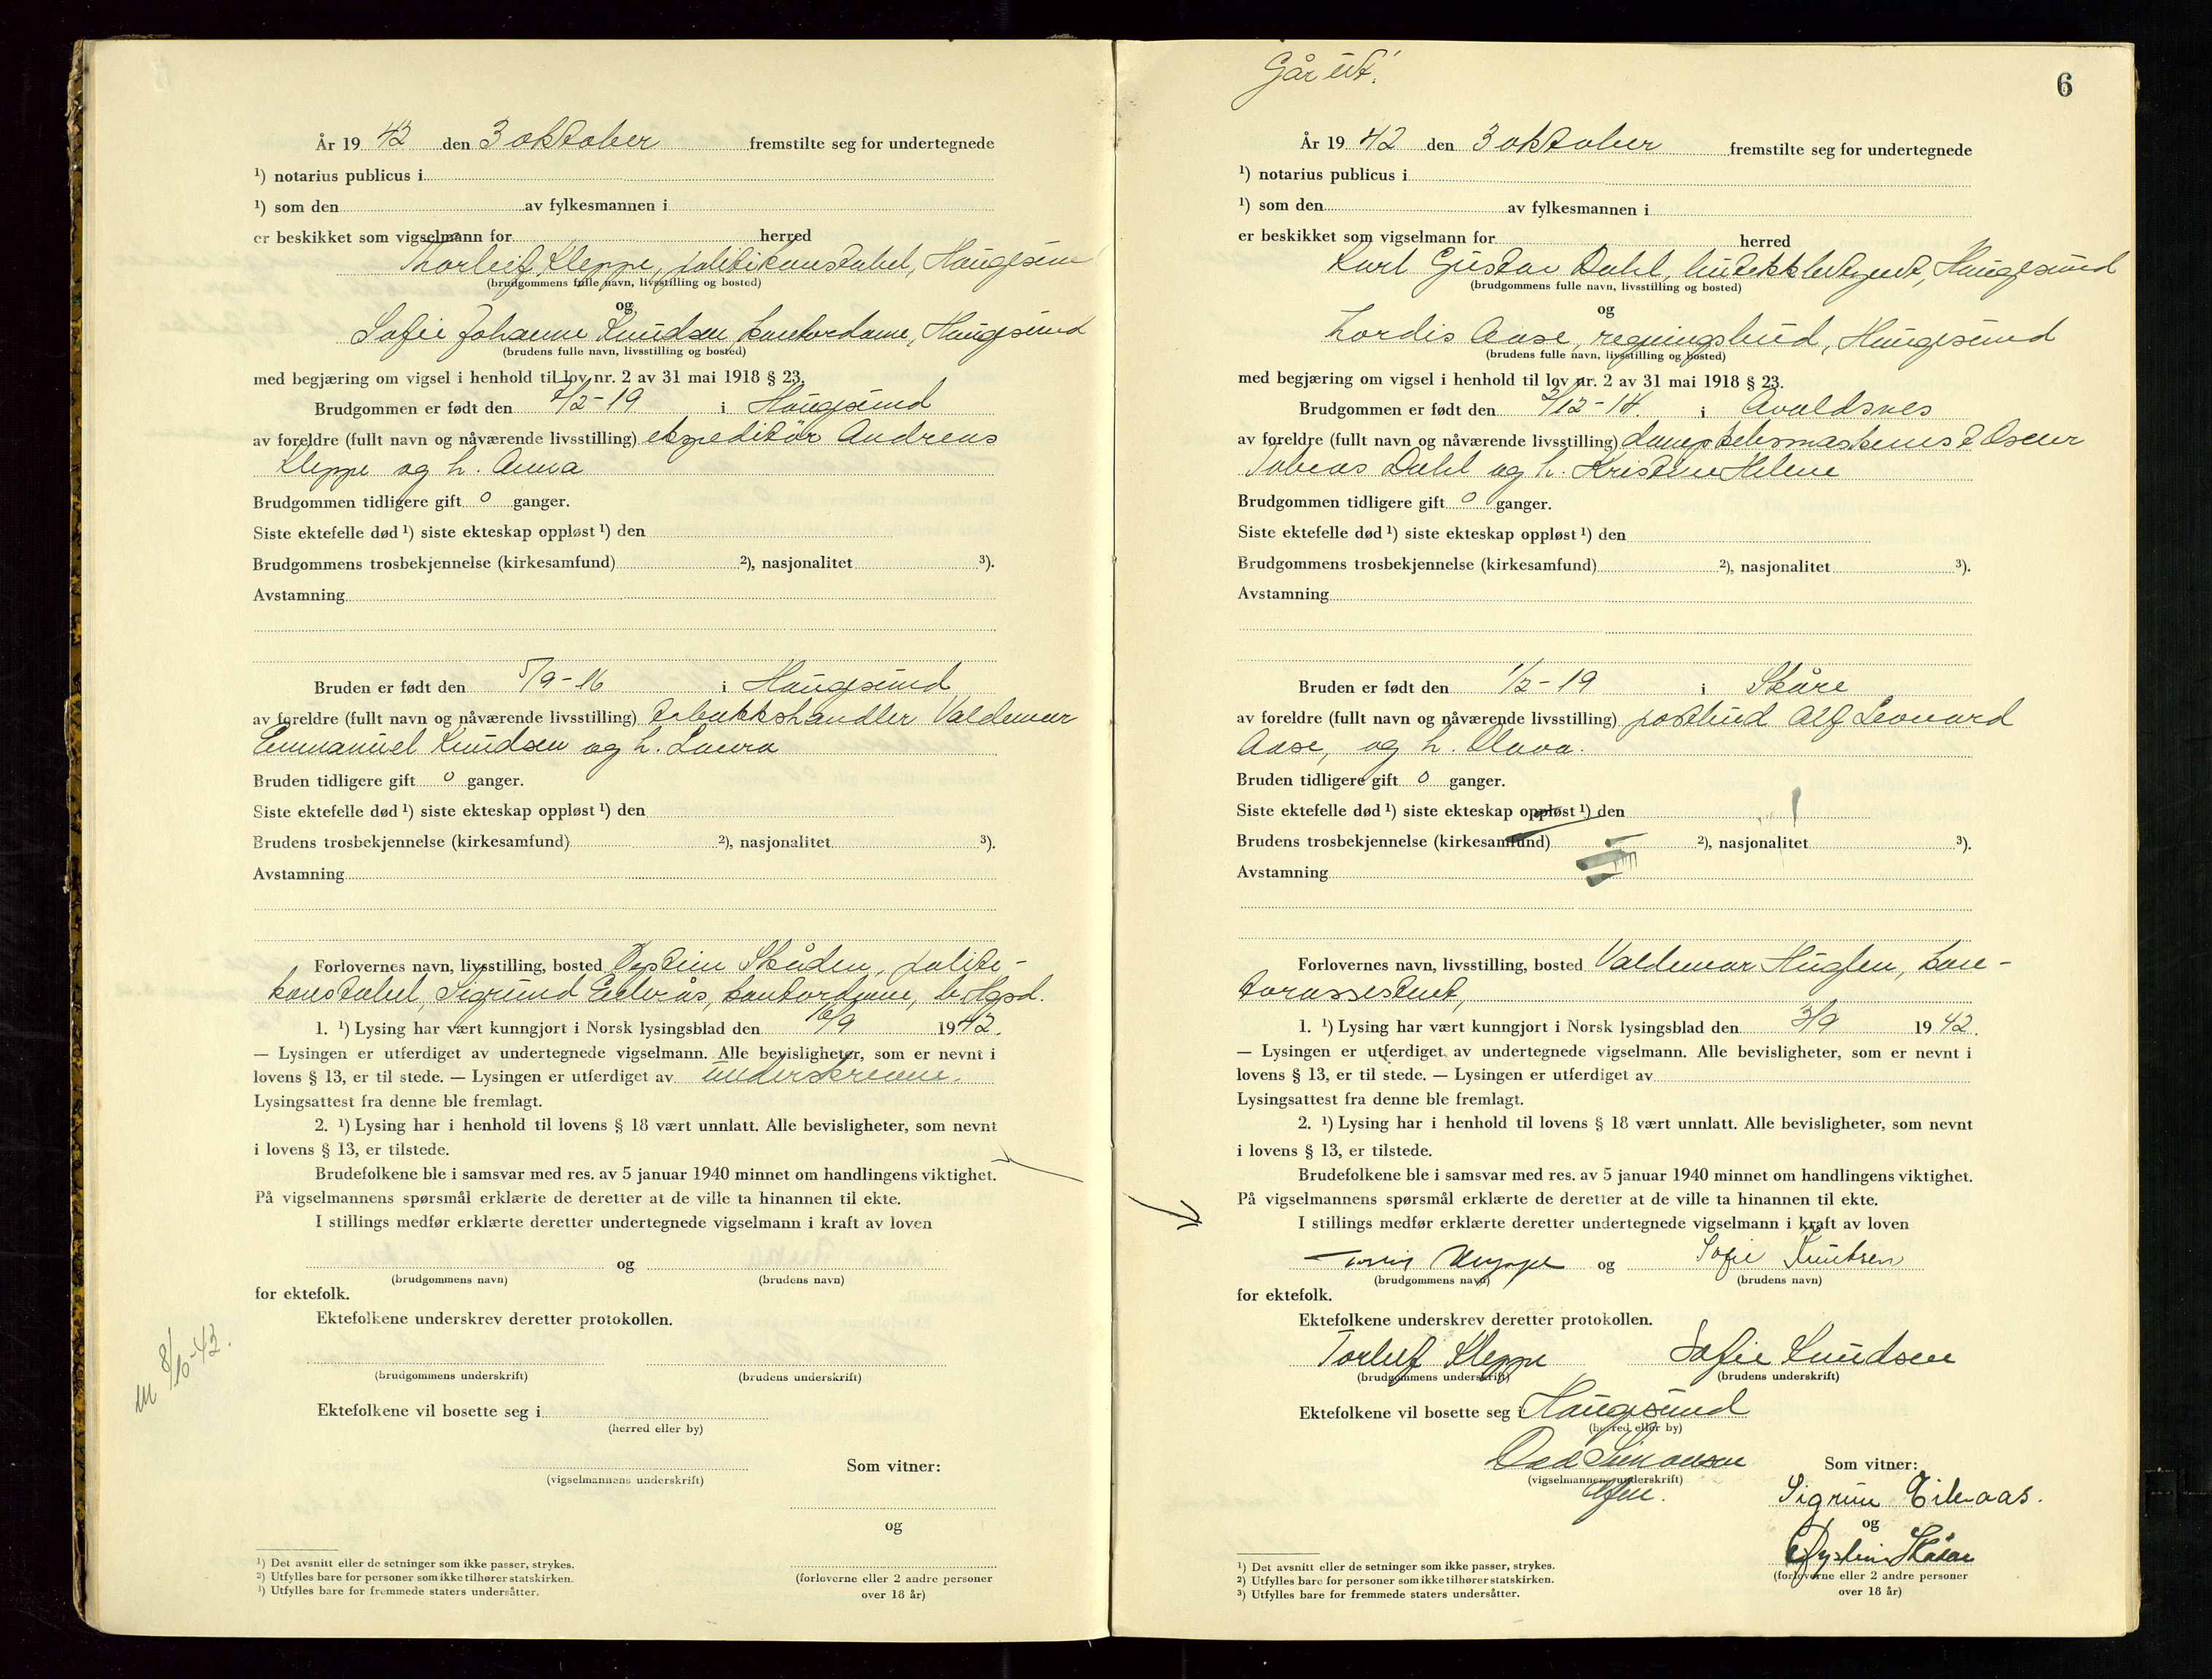 År 19 42 den 3 oktober fremstilte seg for undertegnede
¹) notarius publicus i
¹) som den av fylkesmannen i
er beskikket som vigselmann for herred
Thorleif Kleppe, politikonstabel, Haugesund
(brudgommens fulle navn, livsstilling og bosted)
og
Sofie Johanne Knudsen kontordame, Haugesund
(brudens fulle navn, livsstilling og bosted)
med begjæring om vigsel i henhold til lov nr. 2 av 31 mai 1918 § 23.
Brudgommen er født den /2-19 i Haugesund
av foreldre (fullt navn og nåværende livsstilling) ekspeditör Andreas
Kleppe og h. Anna
Brudgommen tidligere gift 0 ganger.
Siste ektefelle død ¹) siste ekteskap oppløst ¹) den
Brudgommens trosbekjennelse (kirkesamfund) ²), nasjonalitet ³).
Avstamning
Bruden er født den 5/9-16 i Haugesund
av foreldre (fullt navn og nåværende livsstilling) tobakkshandler Valdemar
Emmanuel Knudsen og h. Laura
Bruden tidligere gift 0 ganger.
Siste ektefelle død ¹) siste ekteskap oppløst ¹) den
Brudens trosbekjennelse (kirkesamfund) ²), nasjonalitet ³).
Avstamning
Forlovernes navn, livsstilling, bosted Öystein Skåden, politi-
konstabel, Sigrund Eikrås, kontordame, b. Hgsd.
1. ¹) Lysing har vært kunngjort i Norsk lysingsblad den /9 1942.
— Lysingen er utferdiget av undertegnede vigselmann. Alle bevisligheter, som er nevnt i
lovens § 13, er til stede. — Lysingen er utferdiget av underskrevne.
Lysingsattest fra denne ble fremlagt.
2. ¹) Lysing har i henhold til lovens § 18 vært unnlatt. Alle bevisligheter, som nevnt
i lovens § 13, er tilstede.
Brudefolkene ble i samsvar med res. av 5 januar 1940 minnet om handlingens viktighet.
På vigselmannens spørsmål erklærte de deretter at de ville ta hinannen til ekte.
I stillings medfør erklærte deretter undertegnede vigselmann i kraft av loven
og
(brudgommens navn) (brudens navn)
for ektefolk.
Ektefolkene underskrev deretter protokollen.
(brudgommens underskrift) (brudens underskrift)
m 8/10-43.
Ektefolkene vil bosette seg i
(herred eller by)
Som vitner:
(vigselmannens underskrift)
og
(forloverne eller 2 andre personer
over 18 år)
¹) Det avsnitt eller de setninger som ikke passer, strykes.
²) Utfylles bare for personer som ikke tilhører statskirken.
³) Utfylles bare for fremmede staters undersåtter.
Går ut!
6
År 19 42 den 3 oktober fremstilte seg for undertegnede
¹) notarius publicus i
¹) som den av fylkesmannen i
er beskikket som vigselmann for herred
Karl Gustav Dahl, butikkbetjent, Haugesund
(brudgommens fulle navn, livsstilling og bosted)
og
Tordis Aase, regningsbud, Haugesund
(brudens fulle navn, livsstilling og bosted)
med begjæring om vigsel i henhold til lov nr. 2 av 31 mai 1918 § 23.
Brudgommen er født den /12-14. i Avaldsnes
av foreldre (fullt navn og nåværende livsstilling) dampskibsmaskinist Oscar
Tobias Dahl og h. Kristine Helene
Brudgommen tidligere gift 0 ganger.
Siste ektefelle død ¹) siste ekteskap oppløst ¹) den
Brudgommens trosbekjennelse (kirkesamfund) ²), nasjonalitet ³).
Avstamning
Bruden er født den 1/2-19 i Skåre
av foreldre (fullt navn og nåværende livsstilling) postbud Alf Leonard
Aase, og h. Olava.
Bruden tidligere gift 0 ganger.
Siste ektefelle død ¹) siste ekteskap oppløst ¹) den
Brudens trosbekjennelse (kirkesamfund) ²), nasjonalitet ³).
Avstamning
Forlovernes navn, livsstilling, bosted Valdemar Huglen, kon-
torassistent,
1. ¹) Lysing har vært kunngjort i Norsk lysingsblad den 3/9 1942.
— Lysingen er utferdiget av undertegnede vigselmann. Alle bevisligheter, som er nevnt i
lovens § 13, er til stede. — Lysingen er utferdiget av
Lysingsattest fra denne ble fremlagt.
2. ¹) Lysing har i henhold til lovens § 18 vært unnlatt. Alle bevisligheter, som nevnt
i lovens § 13, er tilstede.
Brudefolkene ble i samsvar med res. av 5 januar 1940 minnet om handlingens viktighet.
På vigselmannens spørsmål erklærte de deretter at de ville ta hinannen til ekte.
I stillings medfør erklærte deretter undertegnede vigselmann i kraft av loven
Kleppe og Sofie Knutsen
(brudgommens navn) (brudens navn)
for ektefolk.
Ektefolkene underskrev deretter protokollen.
Torleif Kleppe Sofie Knudsen
(brudgommens underskrift) (brudens underskrift)
Ektefolkene vil bosette seg i Haugesund
(herred eller by)
Odd Simonsen Som vitner:
(vigselmannens underskrift)
Sigrun Eikraas.
og
Øystein Skåden
(forloverne eller 2 andre personer
over 18 år)
¹) Det avsnitt eller de setninger som ikke passer, strykes.
²) Utfylles bare for personer som ikke tilhører statskirken.
³) Utfylles bare for fremmede staters undersåtter.